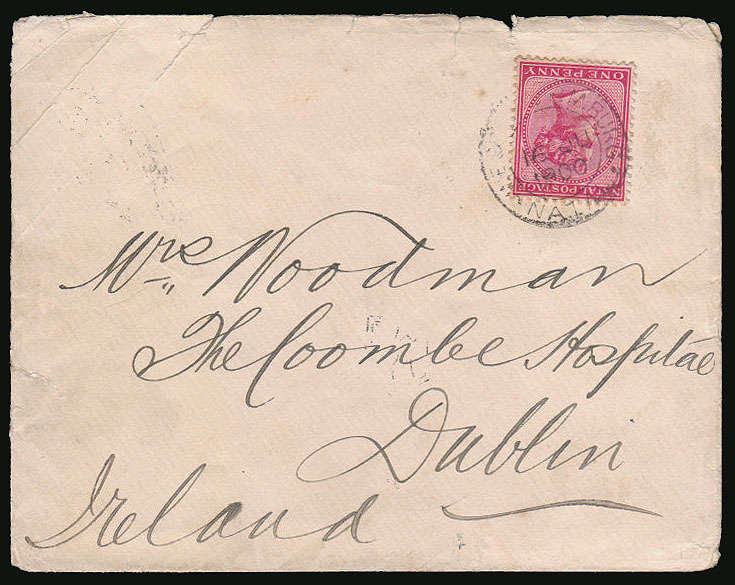 ONE PENNY
NATAL POSTAGE
NATAL
1900
Mrs. Woodman
The Coombe Hospital
Dublin
Ireland